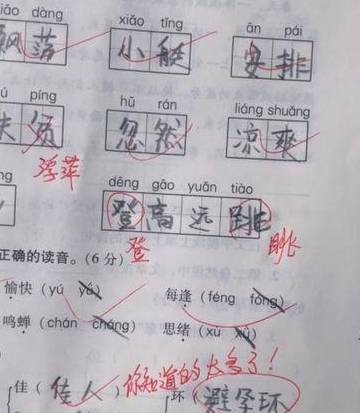 iāo dàng xiǎo tǐng ān pái
飘荡 小艇 安排
ú píng hū rán liáng shuǎng
忽然 凉爽
浮萍
ng dēng gāo yuǎn tiào
登高远跳
登 眺
正确的读音。(6 分)
愉快(yú yú) 每逢(féng fōng)
鸣蝉(chán cháng) 思绪(xu xù)
佳(佳人) 你知道的太多了! 环(避孕环